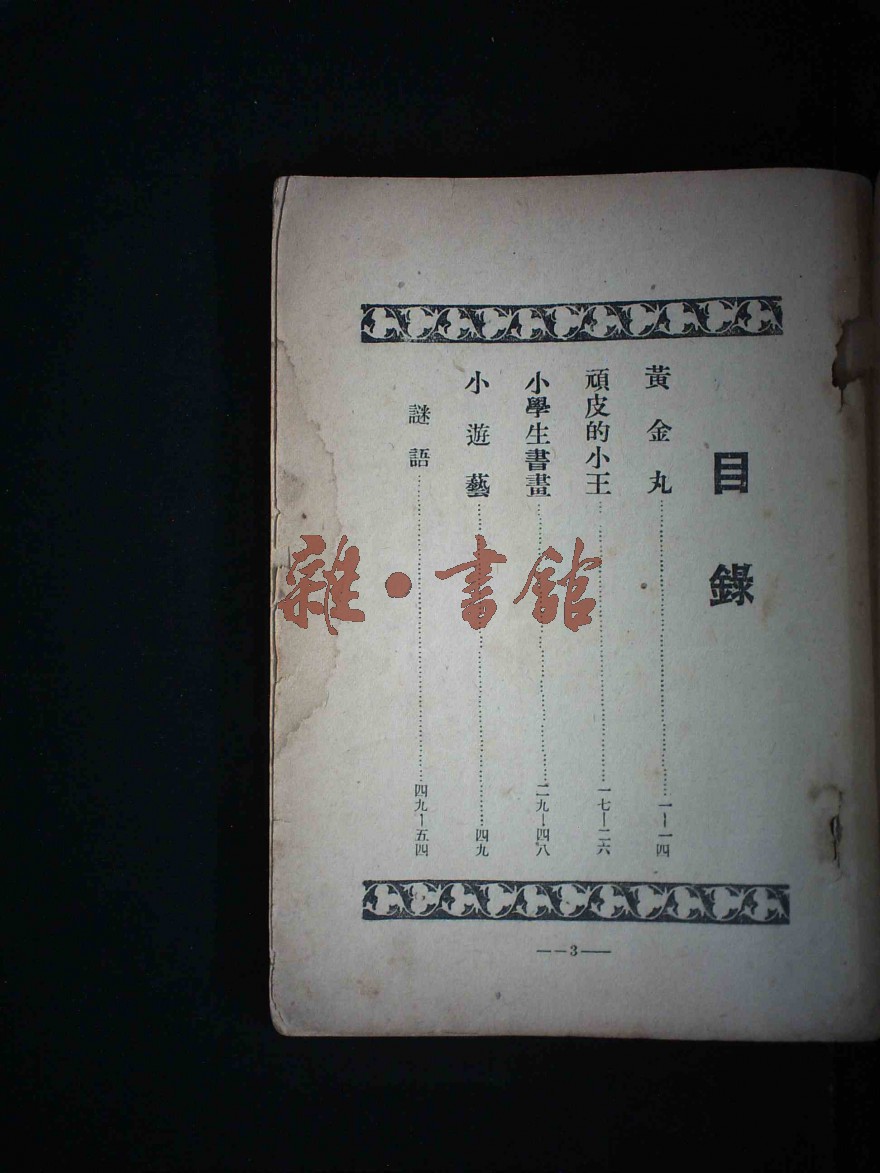 目錄
黃金丸……一—一四
頑皮的小王……一七—二六
小學生書畫……二九—四八
小遊藝……四九
謎語……四九—五四
——3——
雜·書館